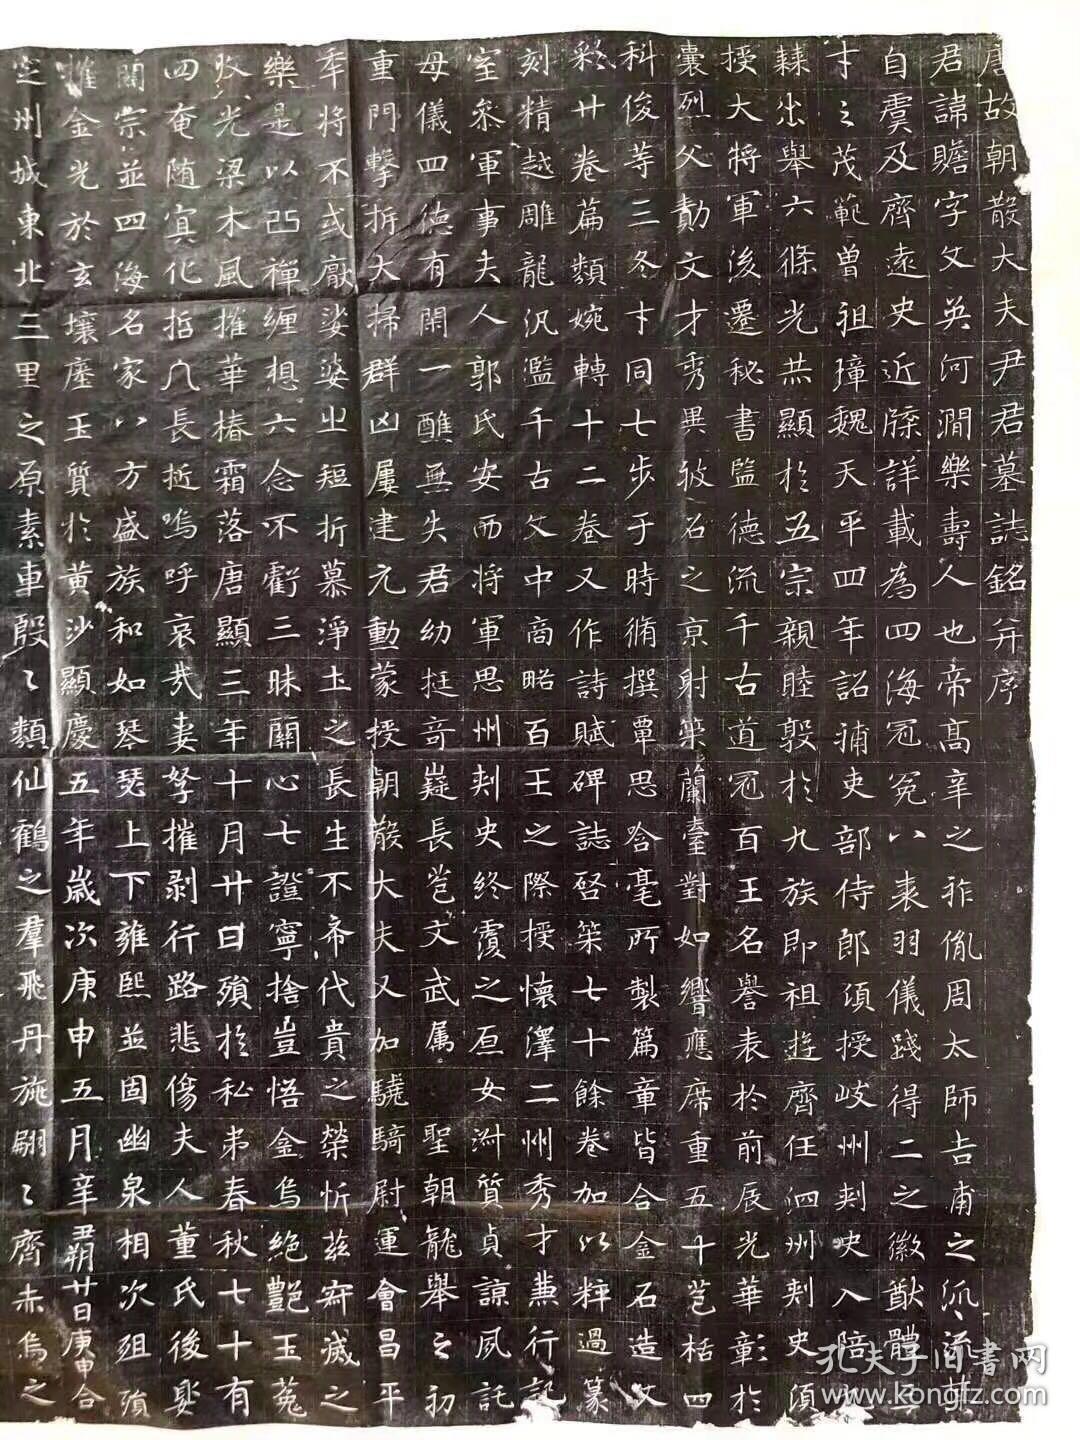 唐故朝散大夫尹君墓誌銘并序
君諱贍字文英河澗樂壽人也帝髙辛之祚胤周太師吉甫之泒流其
自虞及齊遠史近牒詳載為四海冠冕八表羽儀踐得二之徽猷體
才之茂範曾祖璋魏天平四年詔補吏部侍郎須授岐州刾史入陪
棘出舉六條光共顯於五宗親睦毅於九族即祖遊齊任泗州刾史須
授大將軍後遷秘書監德流千古道冠百王名譽表於前辰光華彰於
囊烈父勣文才秀異彼召之京射策蘭臺對如響應席重五十芒栝四
科俊等三冬才同七步于時脩撰覃思含毫所製篇章皆合金石造文
彩廿卷篇類婉轉十二卷又作詩賦碑誌啓筞七十餘卷加以粹過篆
刻精越雕龍汎濫千古文中商略百王之際授懷澤二州秀才兼行記
室叅軍事夫人郭氏安西將軍思州刾史終虔之亘女泲質貞諒夙託
母儀四德有閑一醮無失君幼挺奇嶷長苞文武属聖朝龍舉之初
重門擊拆大掃群凶屢建元勳蒙授朝散大夫又加驍騎尉運會昌平
季將不或厭娑婆出短折慕淨土之長生不希代貴之榮忻茲寂滅之
樂是以凸禪纏想六念不虧三昧關心七證寧捨豈悟金烏絶艷玉菟
收光梁木風摧華椿霜落唐顯三年十月廿日殯於私弟春秋七十有
四奄随冥化拓穴長逝嗚呼哀㢤妻孥摧剥行路悲傷夫人董氏後娶
關宗並四海名家八方盛族和如琴瑟上下雍熙並固幽泉相次殂殞
摧金光於玄壤塵玉質於黄沙顯慶五年歲次庚申五月辛丑朔廿日庚申合
窆州城東北三里之原素車殷々類仙鶴之羣飛丹旐翩々齊赤烏之
孔夫子旧书网
www.kongfz.com